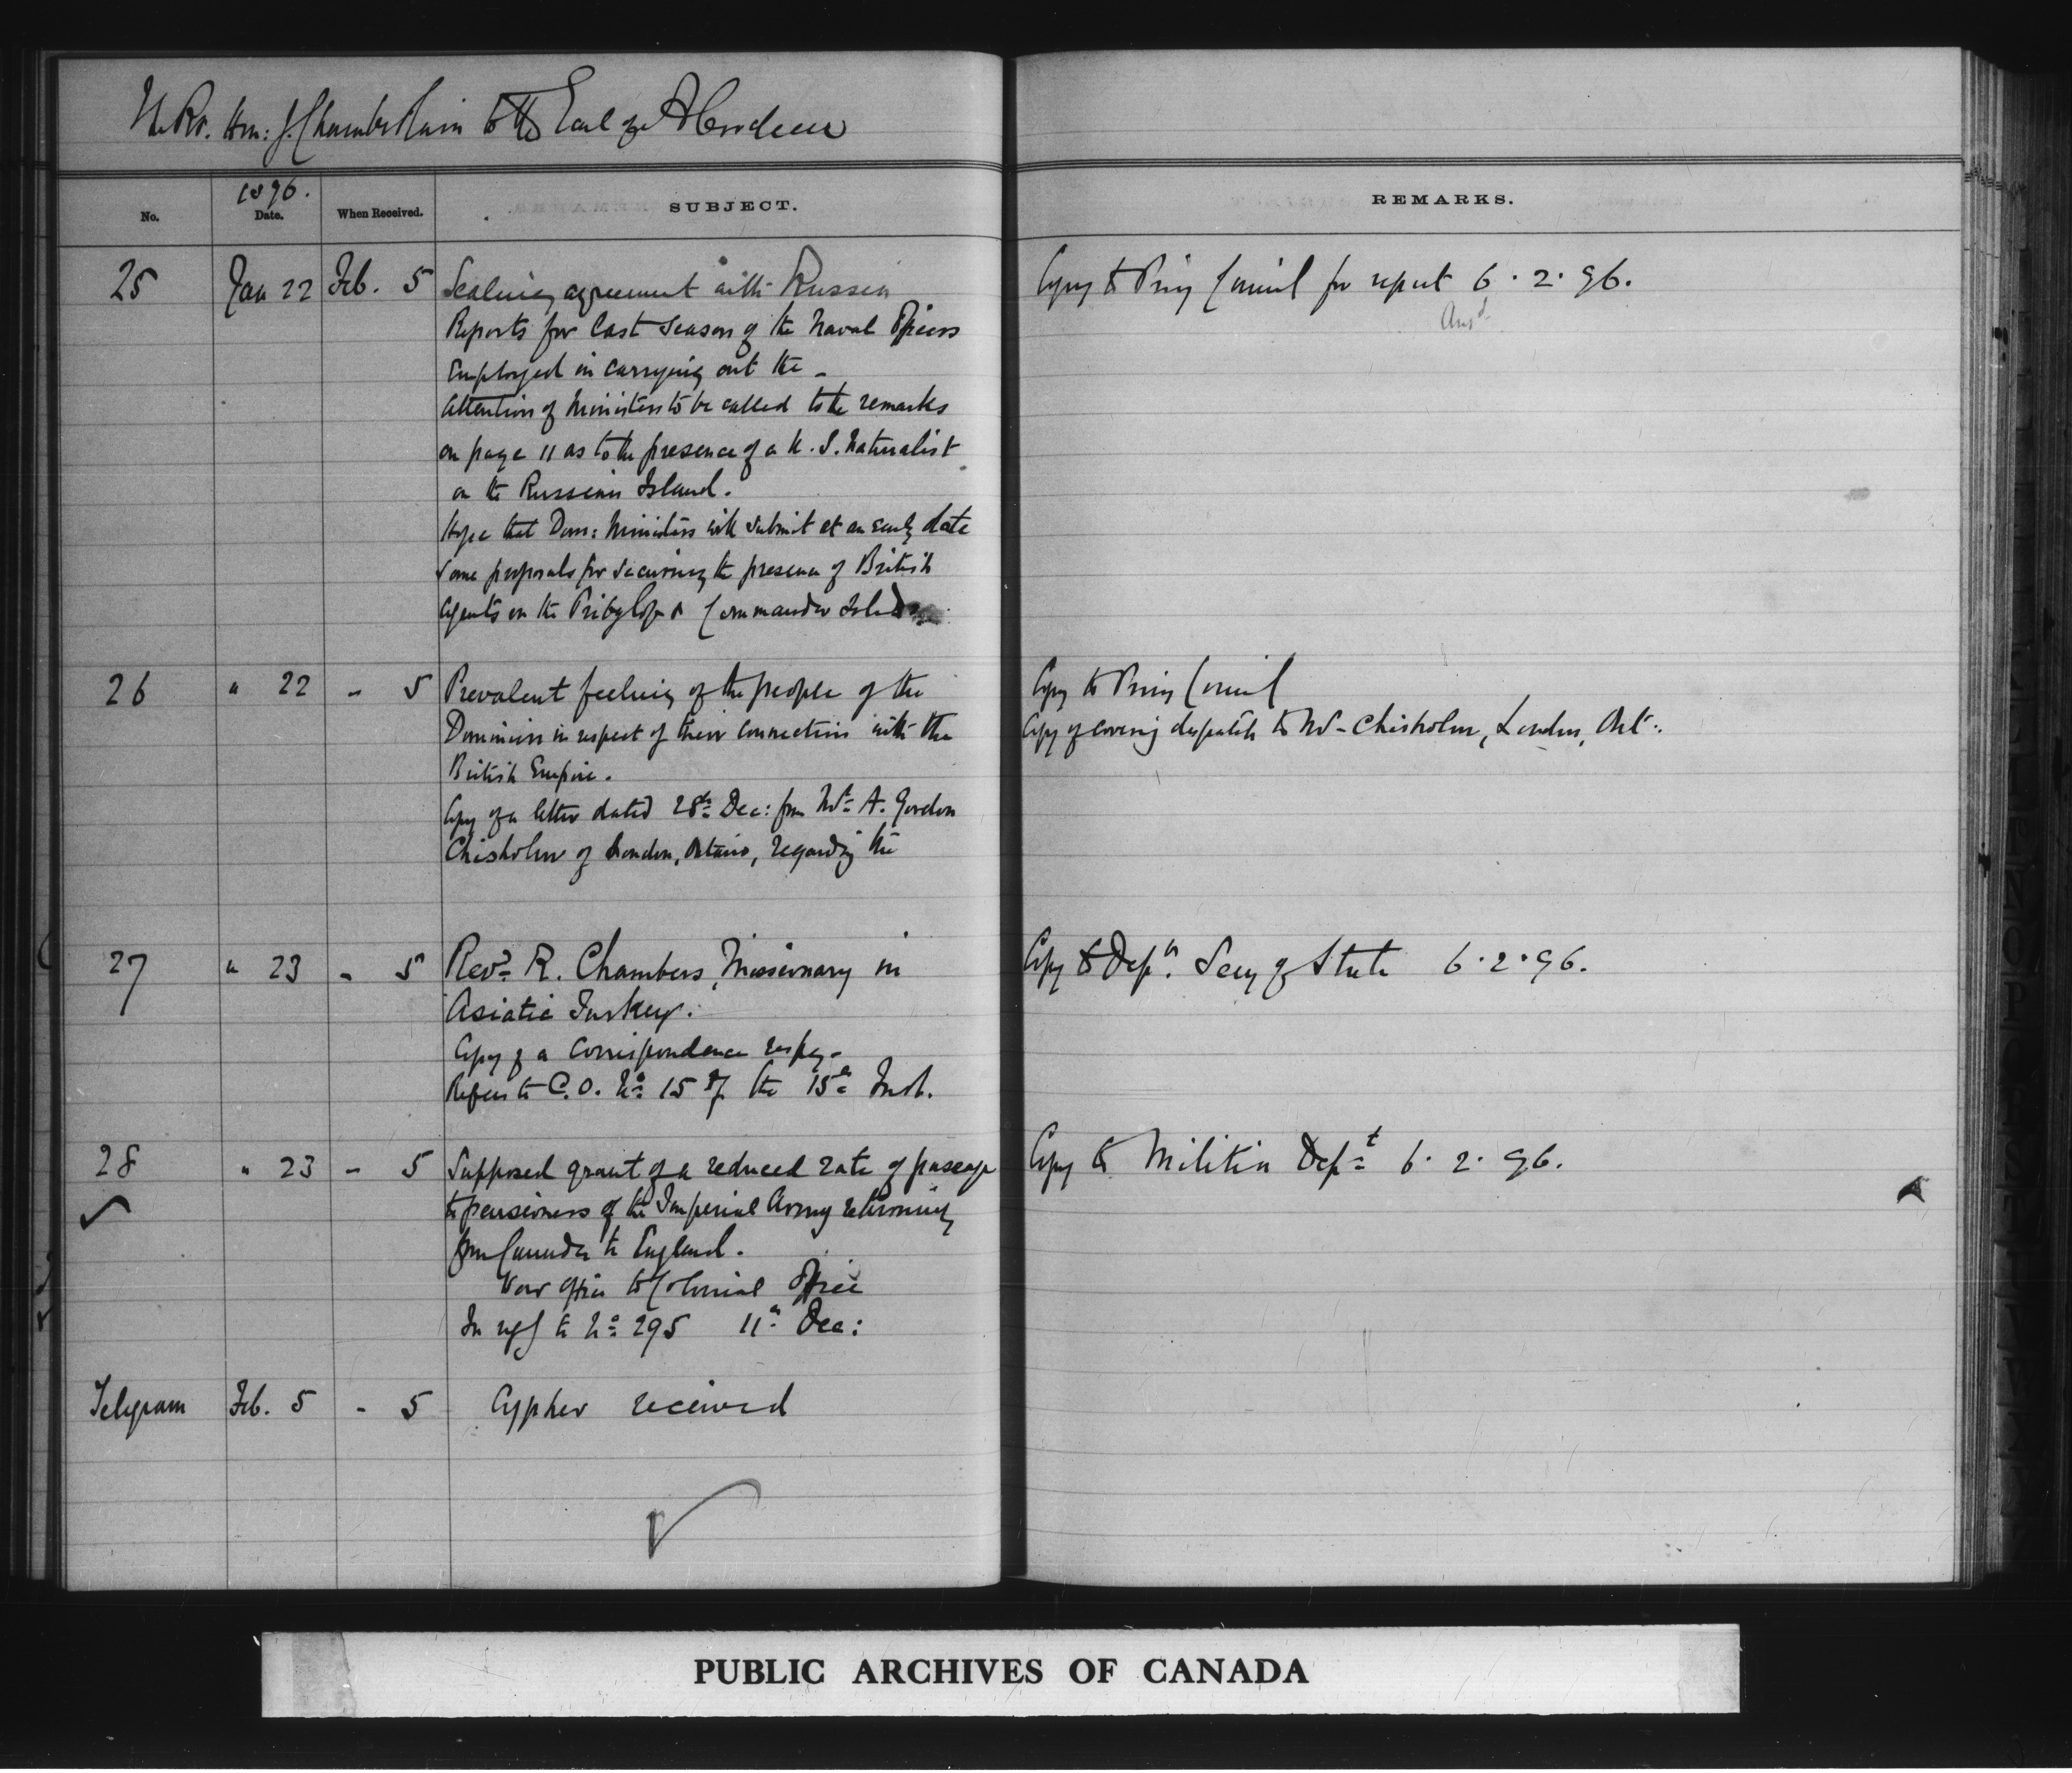 The Rt. Hon: J. Chamberlain to the Earl of Aberdeen
No.
1896.
Date.
When Received.
SUBJECT.
REMARKS.
25 Jan 22 Feb. 5 Sealing agreement with Russia
Reports for last season of the Naval Officers
Employed in carrying out the -
Attention of Ministers to be called to the remarks
on page 11 as to the presence of a U. S. Naturalist
on the Russian Island.
Hope that Dom: Ministers will submit at an early date
some proposals for securing the presence of British
agents on the Pribylof & Commander Islds
Copy to Privy Council for report 6 . 2 . 96.
Ansd
26 " 22 " 5 Prevalent feeling of the people of the
Dominion in respect of their connection with the
British Empire.
Copy of a letter dated 28th Dec: from Mr A. Gordon
Chisholm of London, Ontario, regarding the
Copy to Privy Council
Copy of covering despatch to Mr Chisholm, London, Ont:
27 " 23 " 5 Revd R. Chambers, Missionary in
Asiatic Turkey.
Copy of a correspondence respg -
Refers to C.O. No 15 of the 15th Inst.
Copy to Dept. Secy of State 6 . 2 . 96.
28 " 23 - 5 Supposed grant of a reduced rate of passage
to pensioners of the Imperial Army returning
from Canada to England.
War Office to Colonial Office
In reply to No 295 11th Dec:
Copy to Militia Dept 6 . 2 . 96.
Telegram Feb. 5 - 5 Cypher received
PUBLIC ARCHIVES OF CANADA